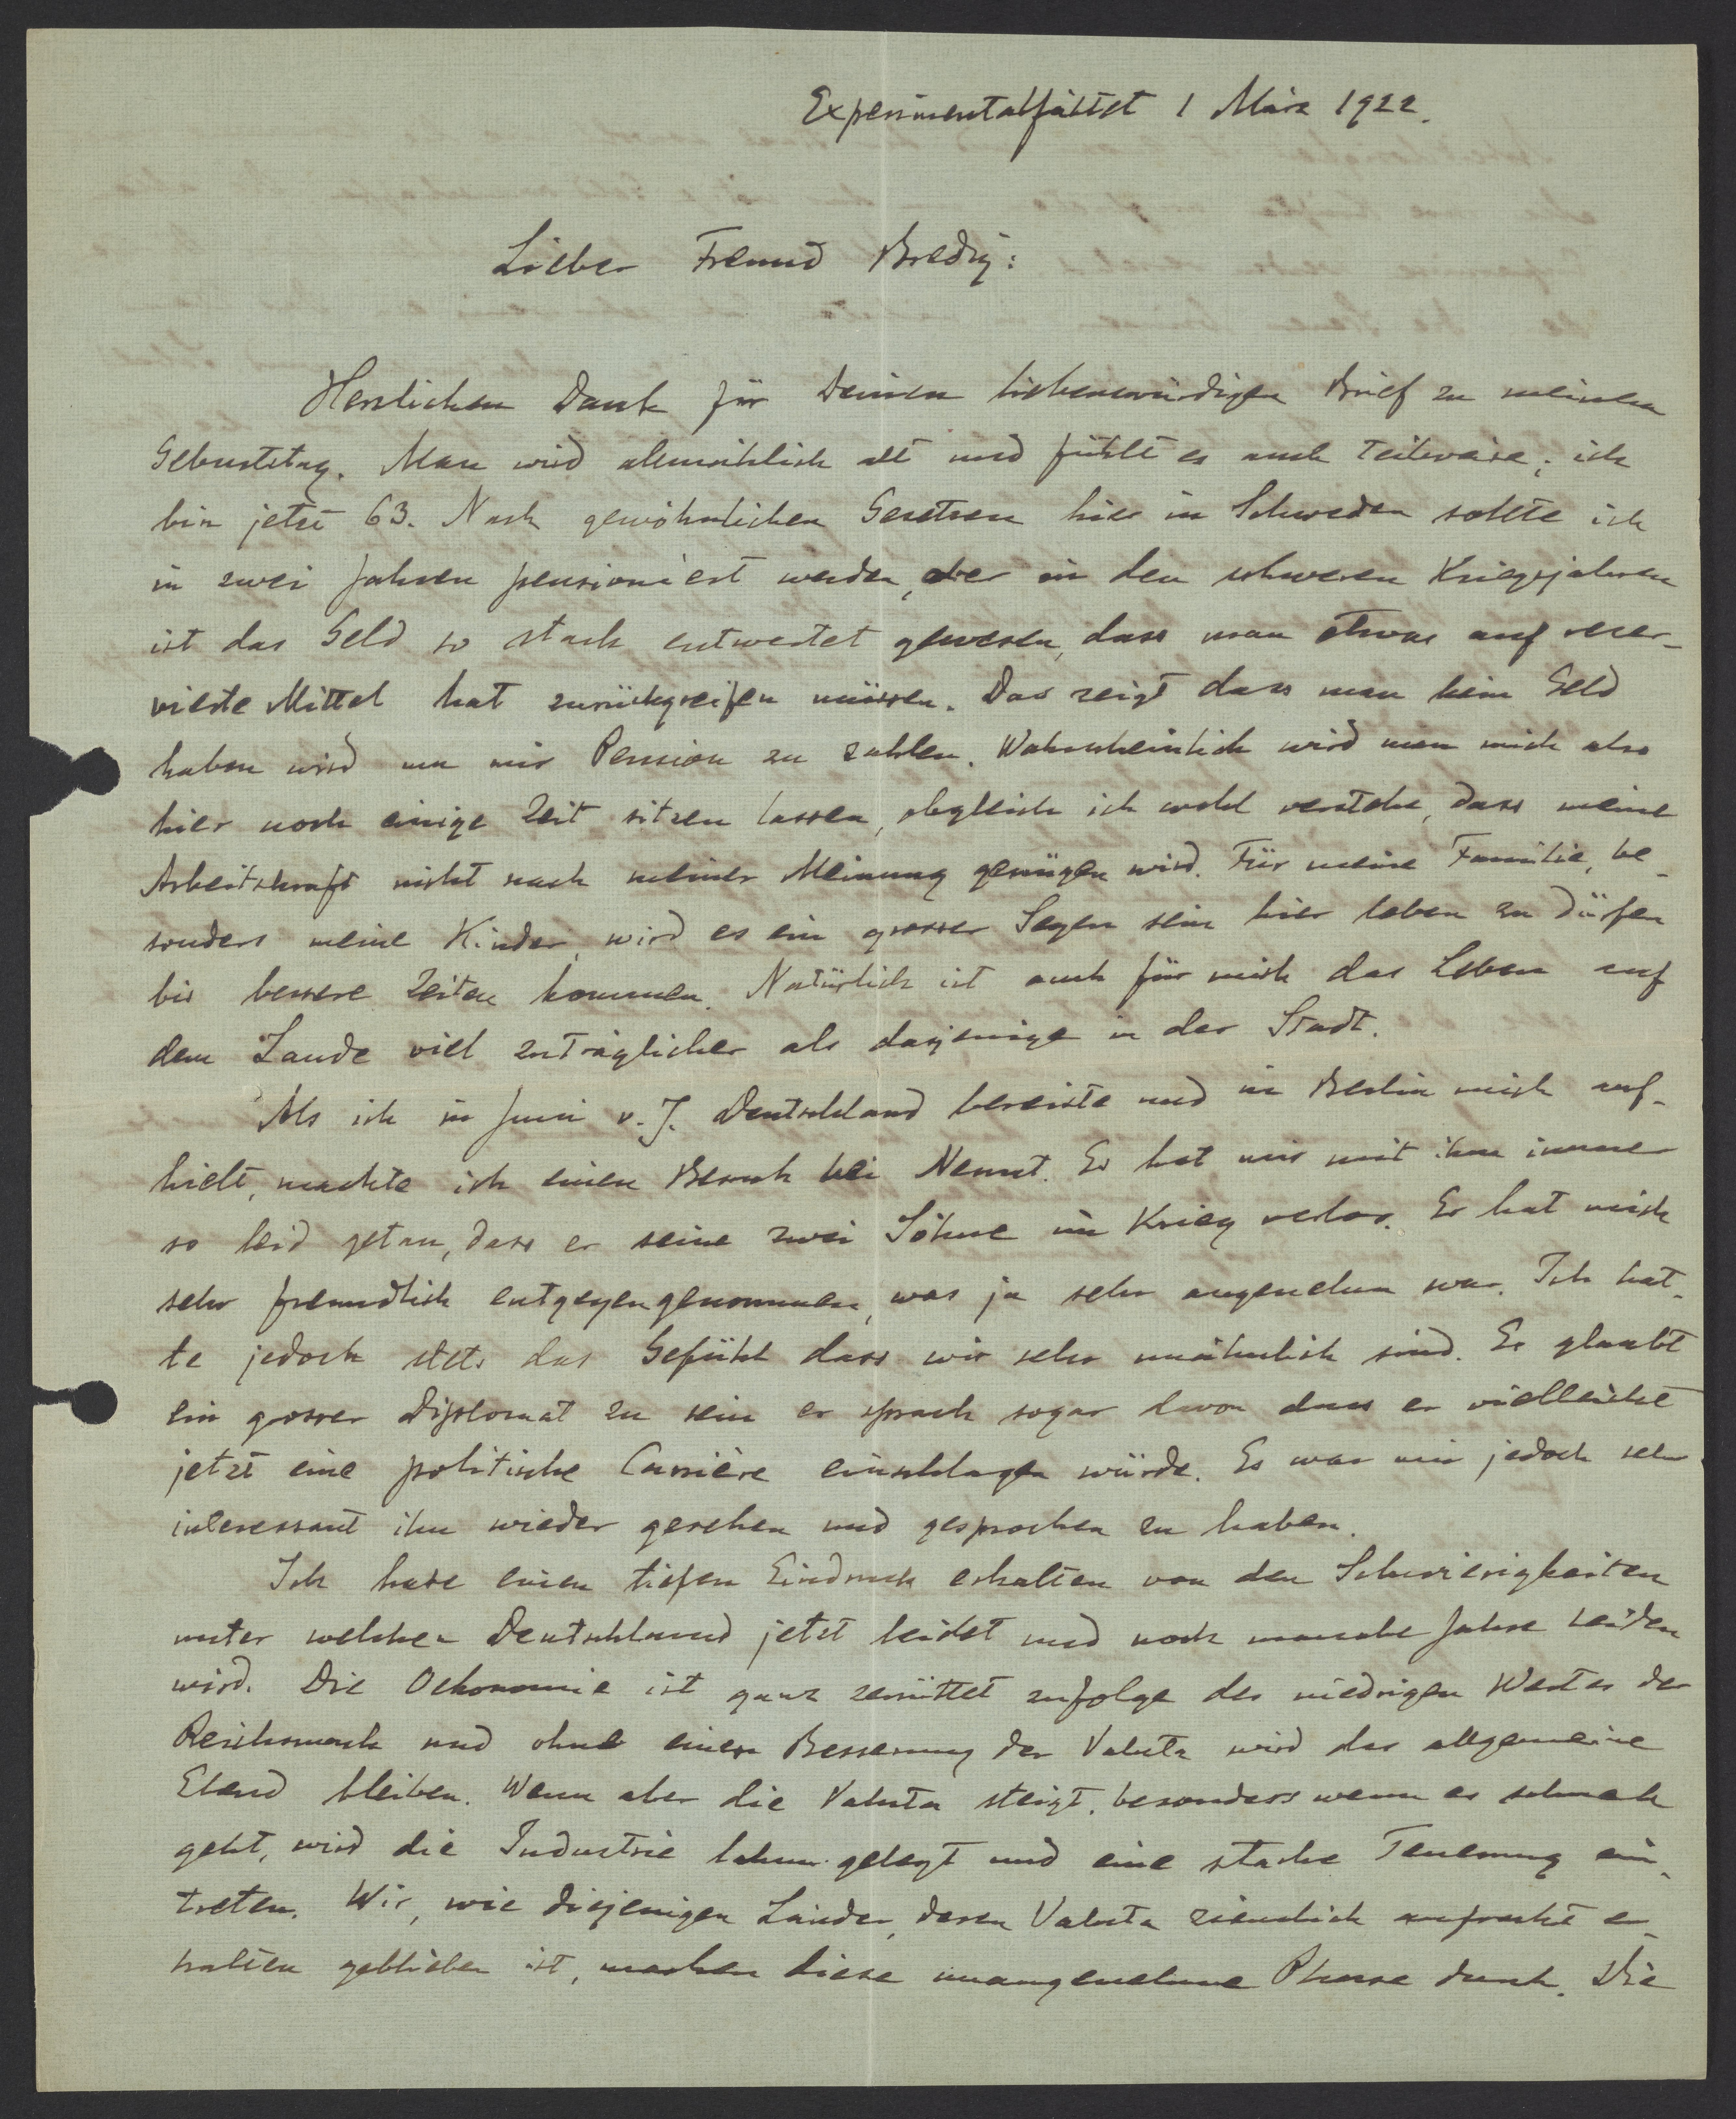 Experimentalfältet 1 März 1922.
Lieber Freund Bredig:
Herzlichen Dank für Deinen liebenswürdigen Brief zu meinem
Geburtstag. Man wird allmählich alt und fühlt es auch teilweise; ich
bin jetzt 63. Nach gewöhnlichen Gesetzen hier in Schweden sollte ich
in zwei Jahren pensioniert werden, aber in den schweren Kriegsjahren
ist das Geld so stark entwertet gewesen, dass man etwas auf reser-
vierte Mittel hat zurückgreifen müssen. Das zeigt dass man kein Geld
haben wird um mir Pension zu zahlen. Wahrscheinlich wird man mich also
hier noch einige Zeit sitzen lassen, obgleich ich wohl verstehe, dass meine
Arbeitskraft nicht nach meiner Meinung genügen wird. Für meine Familie, be-
sonders meine Kinder, wird es ein grosser Segen sein hier leben zu dürfen
bis bessere Zeiten kommen. Natürlich ist auch für mich das Leben auf
dem Lande viel zuträglicher als dasjenige in der Stadt.
Als ich in Juni v. J. Deutschland bereiste und in Berlin mich auf-
hielt, machte ich einen Besuch bei Nernst. Es hat mir mit ihm immer
so leid getan, dass er seine zwei Söhne im Krieg verlor. Er hat mich
sehr freundlich entgegengenommen, was ja sehr angenehm war. Ich hat-
te jedoch stets das Gefühl dass wir sehr unähnlich sind. Er glaubt
ein grosser Diplomat zu sein er sprach sogar davon dass er vielleicht
jetzt eine politische Carrière einschlagen würde. Es war mir jedoch sehr
interessant ihn wieder gesehen und gesprochen zu haben.
Ich habe einen tiefen Eindruck erhalten von den Schwierigkeiten
unter welchen Deutschland jetzt leidet und noch manche Jahre leiden
wird. Die Oekonomie ist ganz zerrüttet zufolge des niedrigen Wertes der
Reichsmark und ohne einer Besserung der Valuta wird das allgemeine
Elend bleiben. Wenn aber die Valuta steigt, besonders wenn es schnell
geht, wird die Industrie lahm gelegt und eine starke Teuerung ein-
treten. Wir, wie diejenigen Länder, deren Valuta ziemlich aufrecht er-
halten geblieben ist, machen diese unangenehme Phase durch. Die